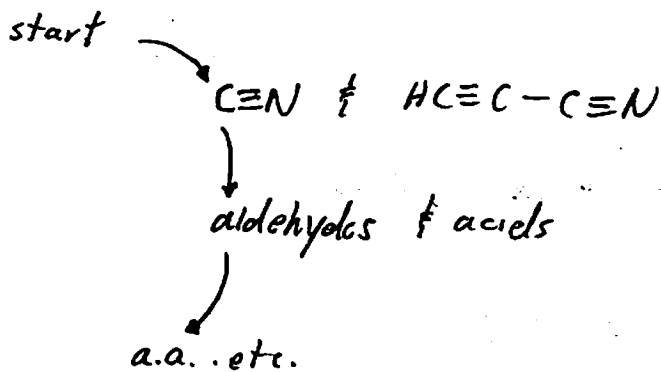 start
C≡N & HC≡C-C≡N
aldehydes & acids
a.a. . etc.